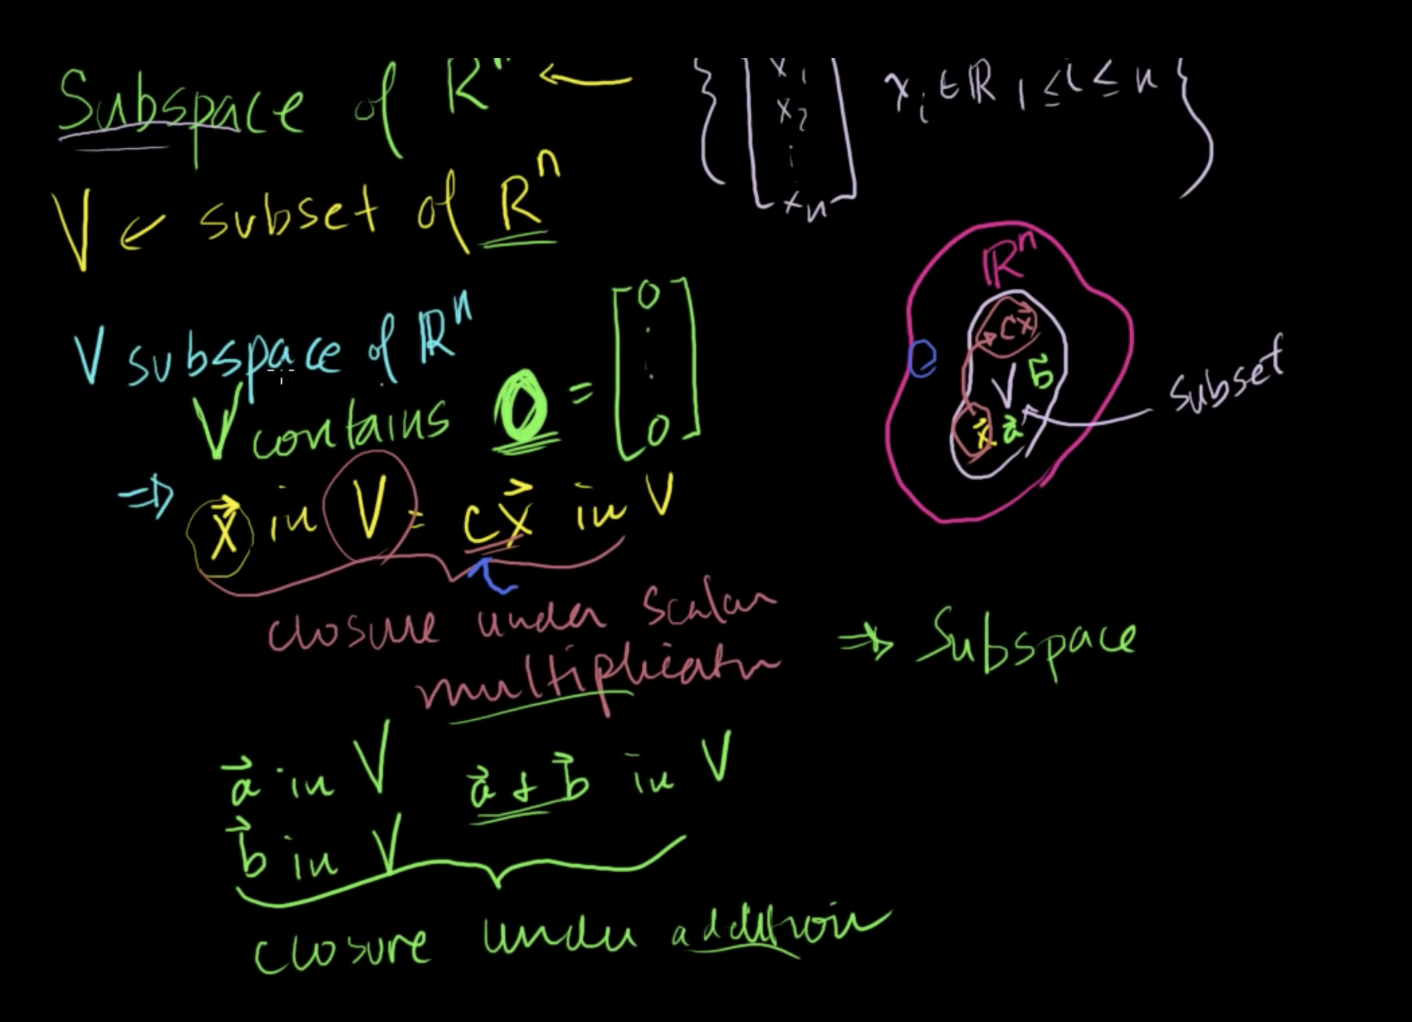 Subspace of Rⁿ ←
{ [ x₁ x₂ ⋮ xₙ ] xᵢ ∈ ℝ 1 ≤ i ≤ n }
V ← subset of Rⁿ
V subspace of ℝⁿ
V contains 0 = [ 0 ⋮ 0 ]
⇒ x⃗ in V = cx⃗ in V
closure under scalar
multiplicatn
⇒ Subspace
a⃗ in V a⃗ + b⃗ in V
b⃗ in V
closure under addition
ℝⁿ
cx⃗
V b⃗
x⃗ a⃗
Subset